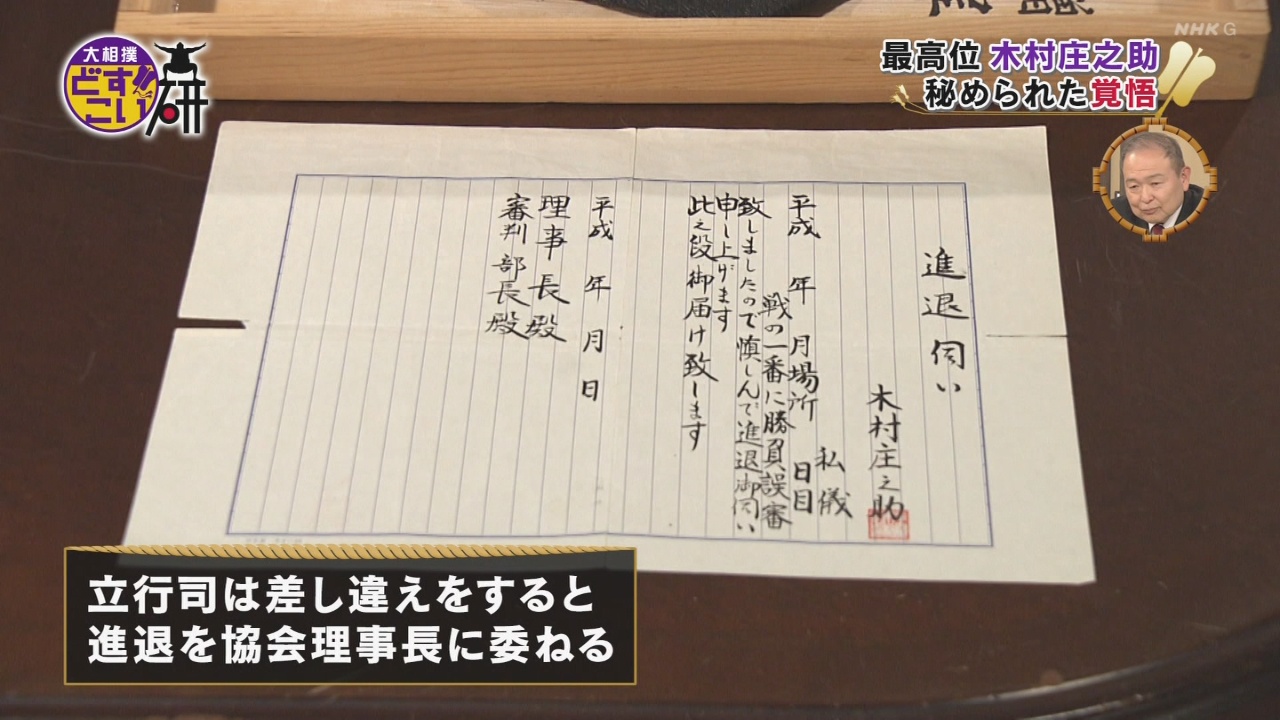 NHK G
大相撲
どす
こい
研
最高位 木村庄之助
秘められた覚悟
進退伺い
木村庄之助
私儀
平成 年 月場所 日目
戦の一番に勝負誤審
致しましたので慎しんで進退御伺い
申し上げます
此之段御届け致します
平成 年 月 日
理事長殿
審判部長殿
立行司は差し違えをすると
進退を協会理事長に委ねる